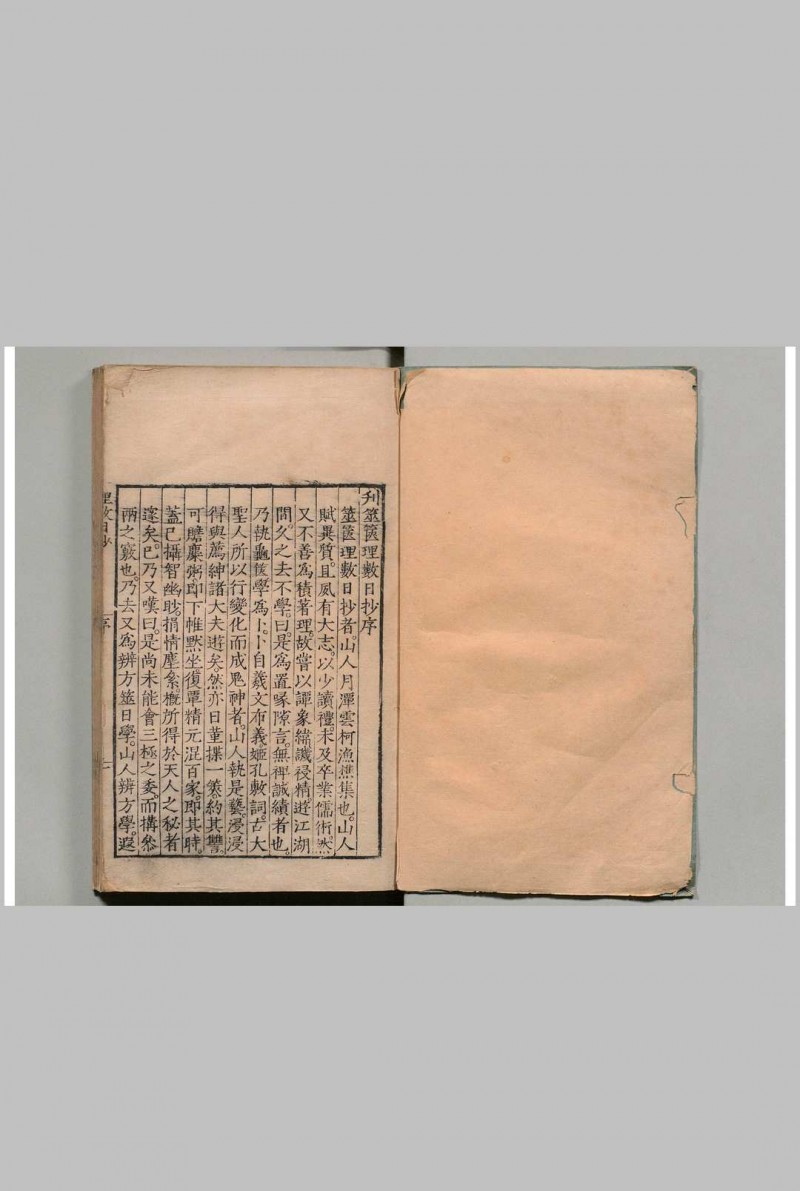 刋筮篋理數日抄序
筮篋理數日抄者。山人月潭雲柯漁樵集也。山人
賦異質。且夙有大志。以少讀禮。未及卒業儒術。然
又不善爲積著理。故嘗以譚象緯讖祲精遊江湖
間。久之去不學。曰。是爲置喙隙言。無裨誠績者也。
乃執龜篋學爲卜。卜自羲文布義姬孔敷詞。古大
聖人所以行變化而成鬼神者。山人執是藝。浸浸
得與薦紳諸大夫遊矣。然亦日董揲一策。約其讐。
可贍糜粥。即下帷默坐。復覃精元混百家。即其時。
蓋已攝智幽眇。捐情塵絫。概所得於天人之秘者
邃矣。已乃又嘆曰。是尚未能會三極之委。而搆叅
兩之竅也。乃去又爲辨方筮日學。山人辨方學。遐
理数日抄
序
一